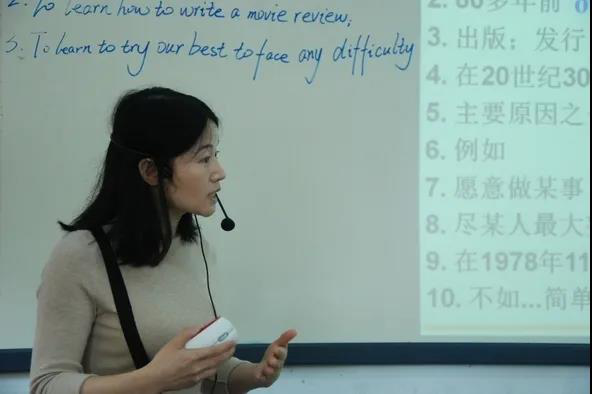 2. To learn how to write a movie review;
3. To learn to try our best to face any difficulty
2. 80多年前
3. 出版；发行
4. 在20世纪30
5. 主要原因之
6. 例如
7. 愿意做某事
8. 尽某人最大
9. 在1978年11
10. 不如...简单